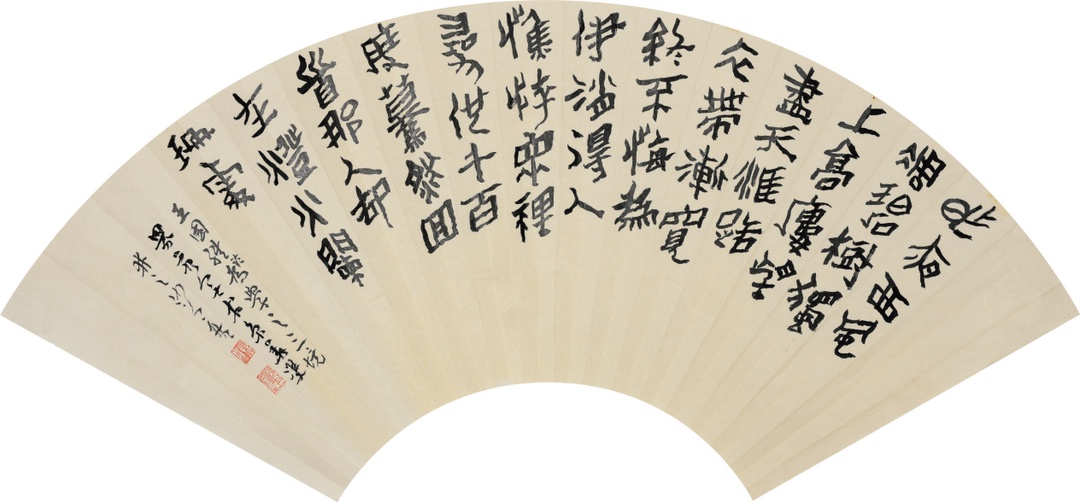 昨夜西風
凋碧樹獨
上高廔望
盡天涯路
衣帶漸寬
終不悔為
伊消得人
憔悴眾裡
尋他千百
度驀然回
首那人却
在燈火闌
珊處
王國維哲學之三境
界